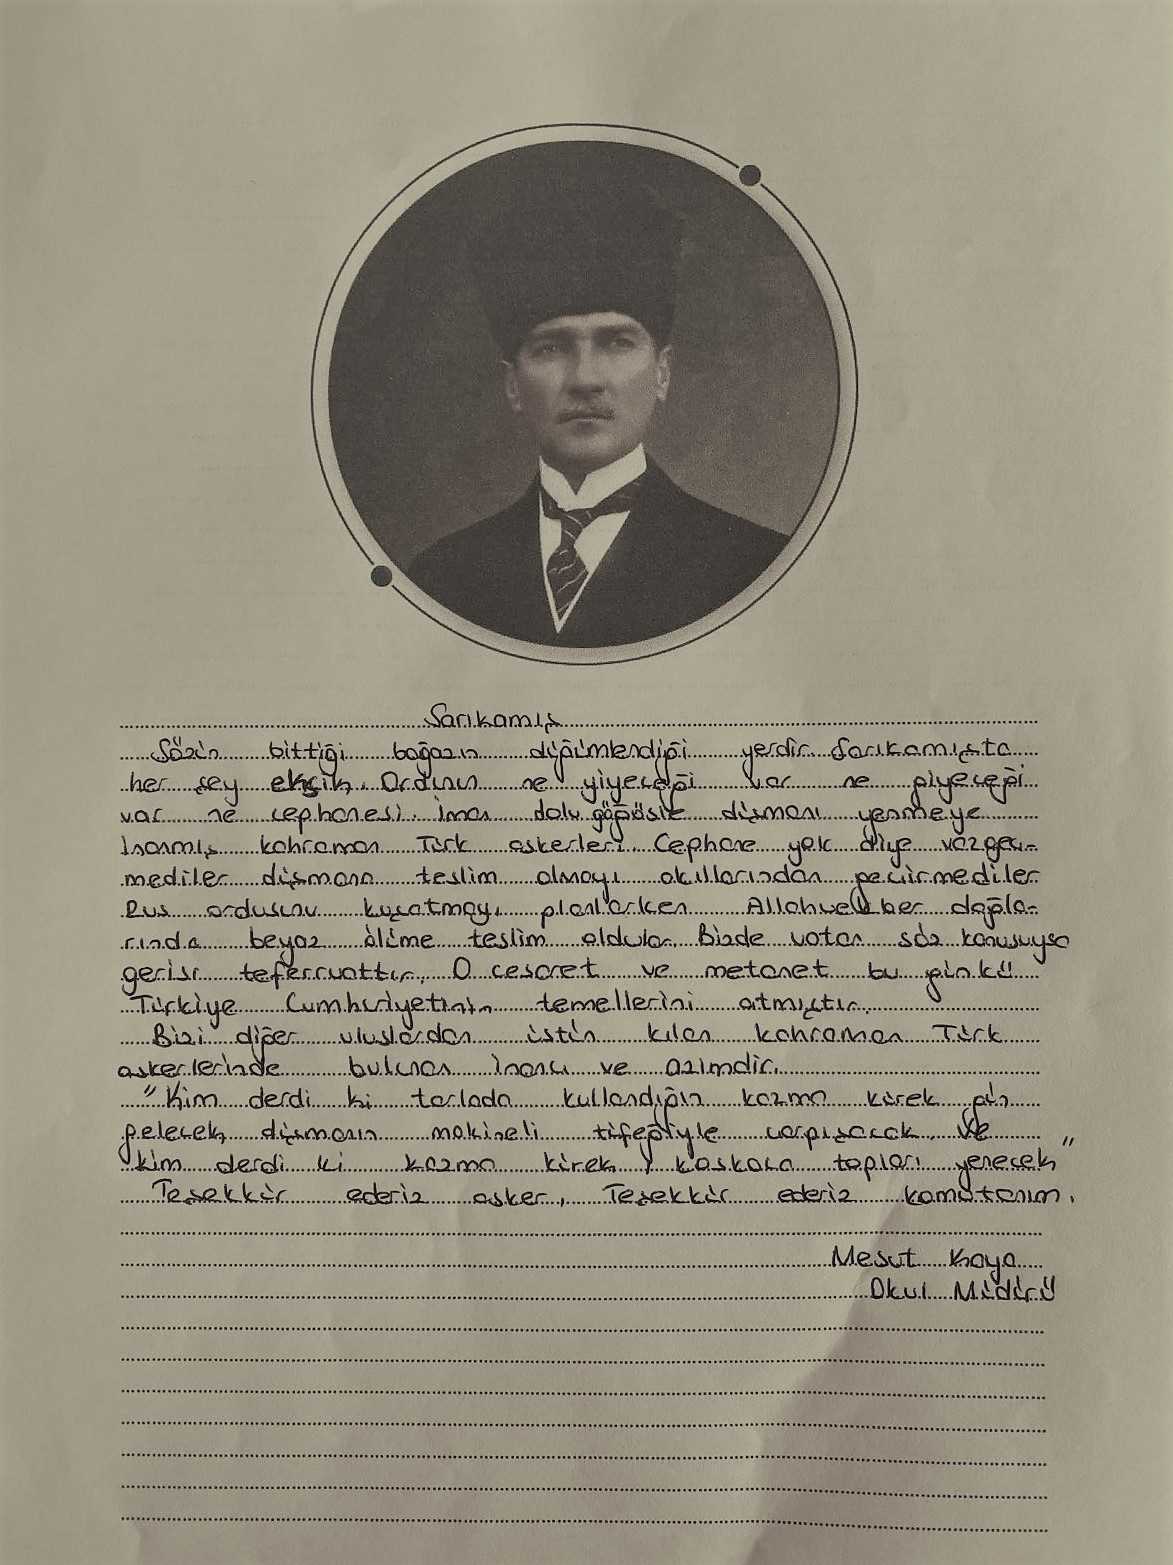 Sarıkamış
Sözün bittiği boğazın düğümlendiği yerdir Sarıkamışta
her şey eksik. Ordunun ne yiyeceği var ne giyeceği
var ne cephanesi. İman dolu göğüsle düşmanı yenmeye
inanmış kahraman Türk askerleri. Cephane yok diye vazgeç-
mediler düşmana teslim olmayı akıllarından geçirmediler
Rus ordusunu kuşatmayı planlarken Allahuekber dağla-
rında beyaz ölüme teslim oldular. Bizde vatan söz konusuysa
gerisi teferruattır. O cesaret ve metanet bu günkü
Türkiye Cumhuriyetinin temellerini atmıştır.
Bizi diğer uluslardan üstün kılan kahraman Türk
askerlerinde bulunan inancı ve azimdir.
"Kim derdi ki tarlada kullandığın kazma kürek gün
gelecek düşmanın makineli tüfeğiyle çarpışacak. Ve
kim derdi ki kazma kürek, koskoca topları yenecek"
Teşekkür ederiz asker, Teşekkür ederiz komutanım.
Mesut Kaya
Okul Müdürü